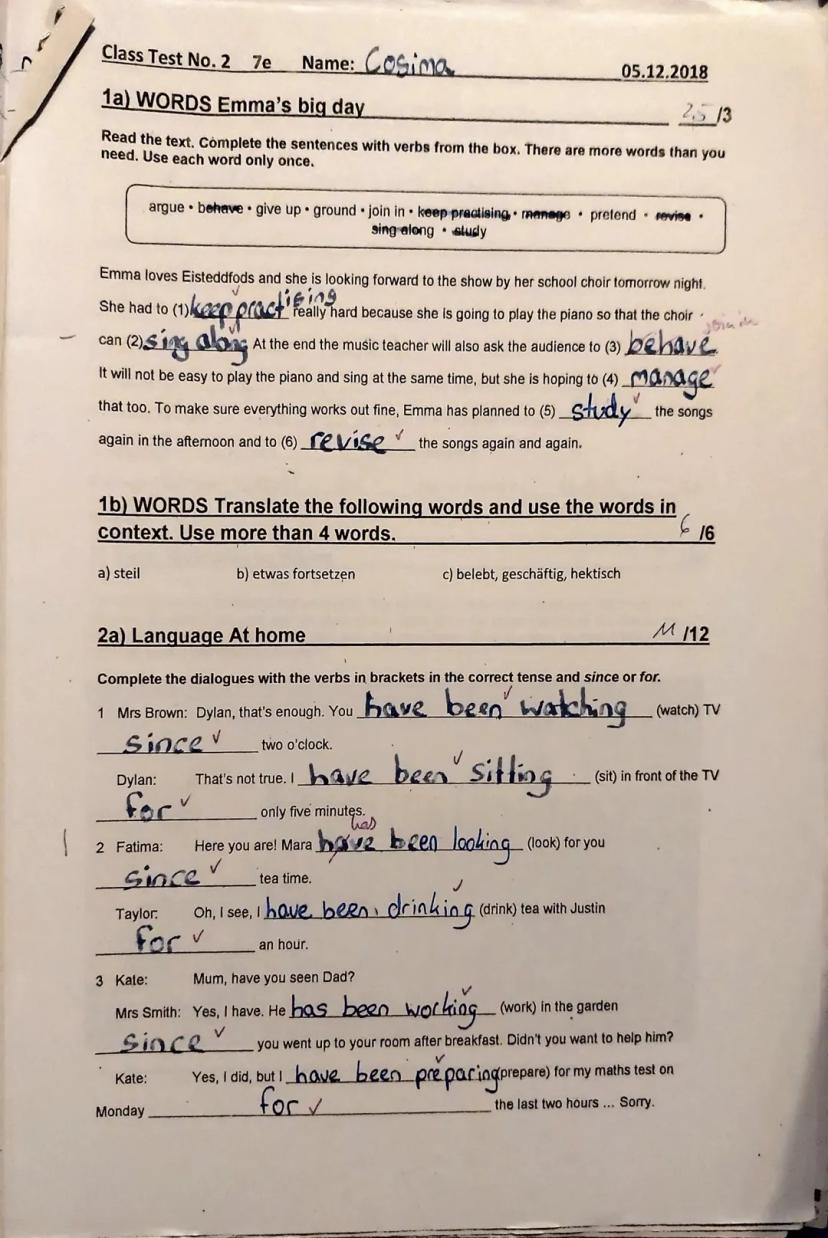 Class Test No. 2 7e Name: Cosima 05.12.2018
1a) WORDS Emma's big day 2,5 /3
Read the text. Complete the sentences with verbs from the box. There are more words than you
need. Use each word only once.
argue • behave • give up • ground • join in • keep practising • manage • pretend • revise •
sing along • study
Emma loves Eisteddfods and she is looking forward to the show by her school choir tomorrow night.
She had to (1) keep practising really hard because she is going to play the piano so that the choir
join in
can (2) sing along At the end the music teacher will also ask the audience to (3) behave
It will not be easy to play the piano and sing at the same time, but she is hoping to (4) manage
that too. To make sure everything works out fine, Emma has planned to (5) study the songs
again in the afternoon and to (6) revise the songs again and again.
1b) WORDS Translate the following words and use the words in
context. Use more than 4 words. 6 /6
a) steil b) etwas fortsetzen c) belebt, geschäftig, hektisch
2a) Language At home 11 /12
Complete the dialogues with the verbs in brackets in the correct tense and since or for.
1 Mrs Brown: Dylan, that's enough. You have been watching (watch) TV
since two o'clock.
Dylan: That's not true. I have been sitting (sit) in front of the TV
for only five minutes.
has
2 Fatima: Here you are! Mara have been looking (look) for you
since tea time.
Taylor: Oh, I see, I have been drinking (drink) tea with Justin
for an hour.
3 Kate: Mum, have you seen Dad?
Mrs Smith: Yes, I have. He has been working (work) in the garden
since you went up to your room after breakfast. Didn't you want to help him?
Kate: Yes, I did, but I have been preparing (prepare) for my maths test on
Monday for the last two hours ... Sorry.